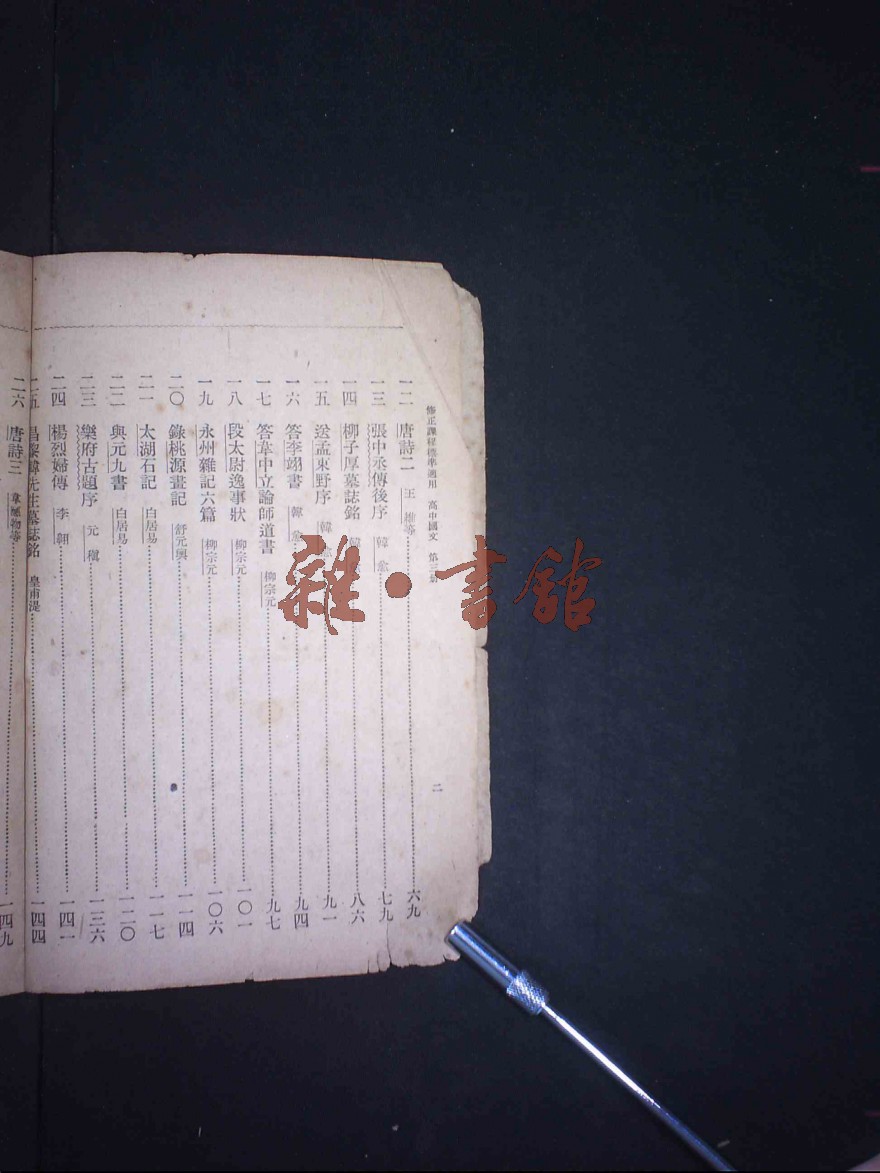 修正課程標準適用 高中國文 第三册
二
一二 唐詩二 王維等 六九
一三 張中丞傳後序 韓愈 七九
一四 柳子厚墓誌銘 韓 八六
一五 送孟東野序 韓愈 九一
一六 答李翊書 韓愈 九四
一七 答韋中立論師道書 柳宗元 九七
一八 段太尉逸事狀 柳宗元 一〇一
一九 永州雜記六篇 柳宗元 一〇六
二〇 錄桃源畫記 舒元輿 一一四
二一 太湖石記 白居易 一一七
二二 與元九書 白居易 一二〇
二三 樂府古題序 元稹 一三六
二四 楊烈婦傳 李翺 一四一
二五 昌黎韓先生墓誌銘 皇甫湜 一四四
二六 唐詩三 韋應物等 一四九
雜·書館